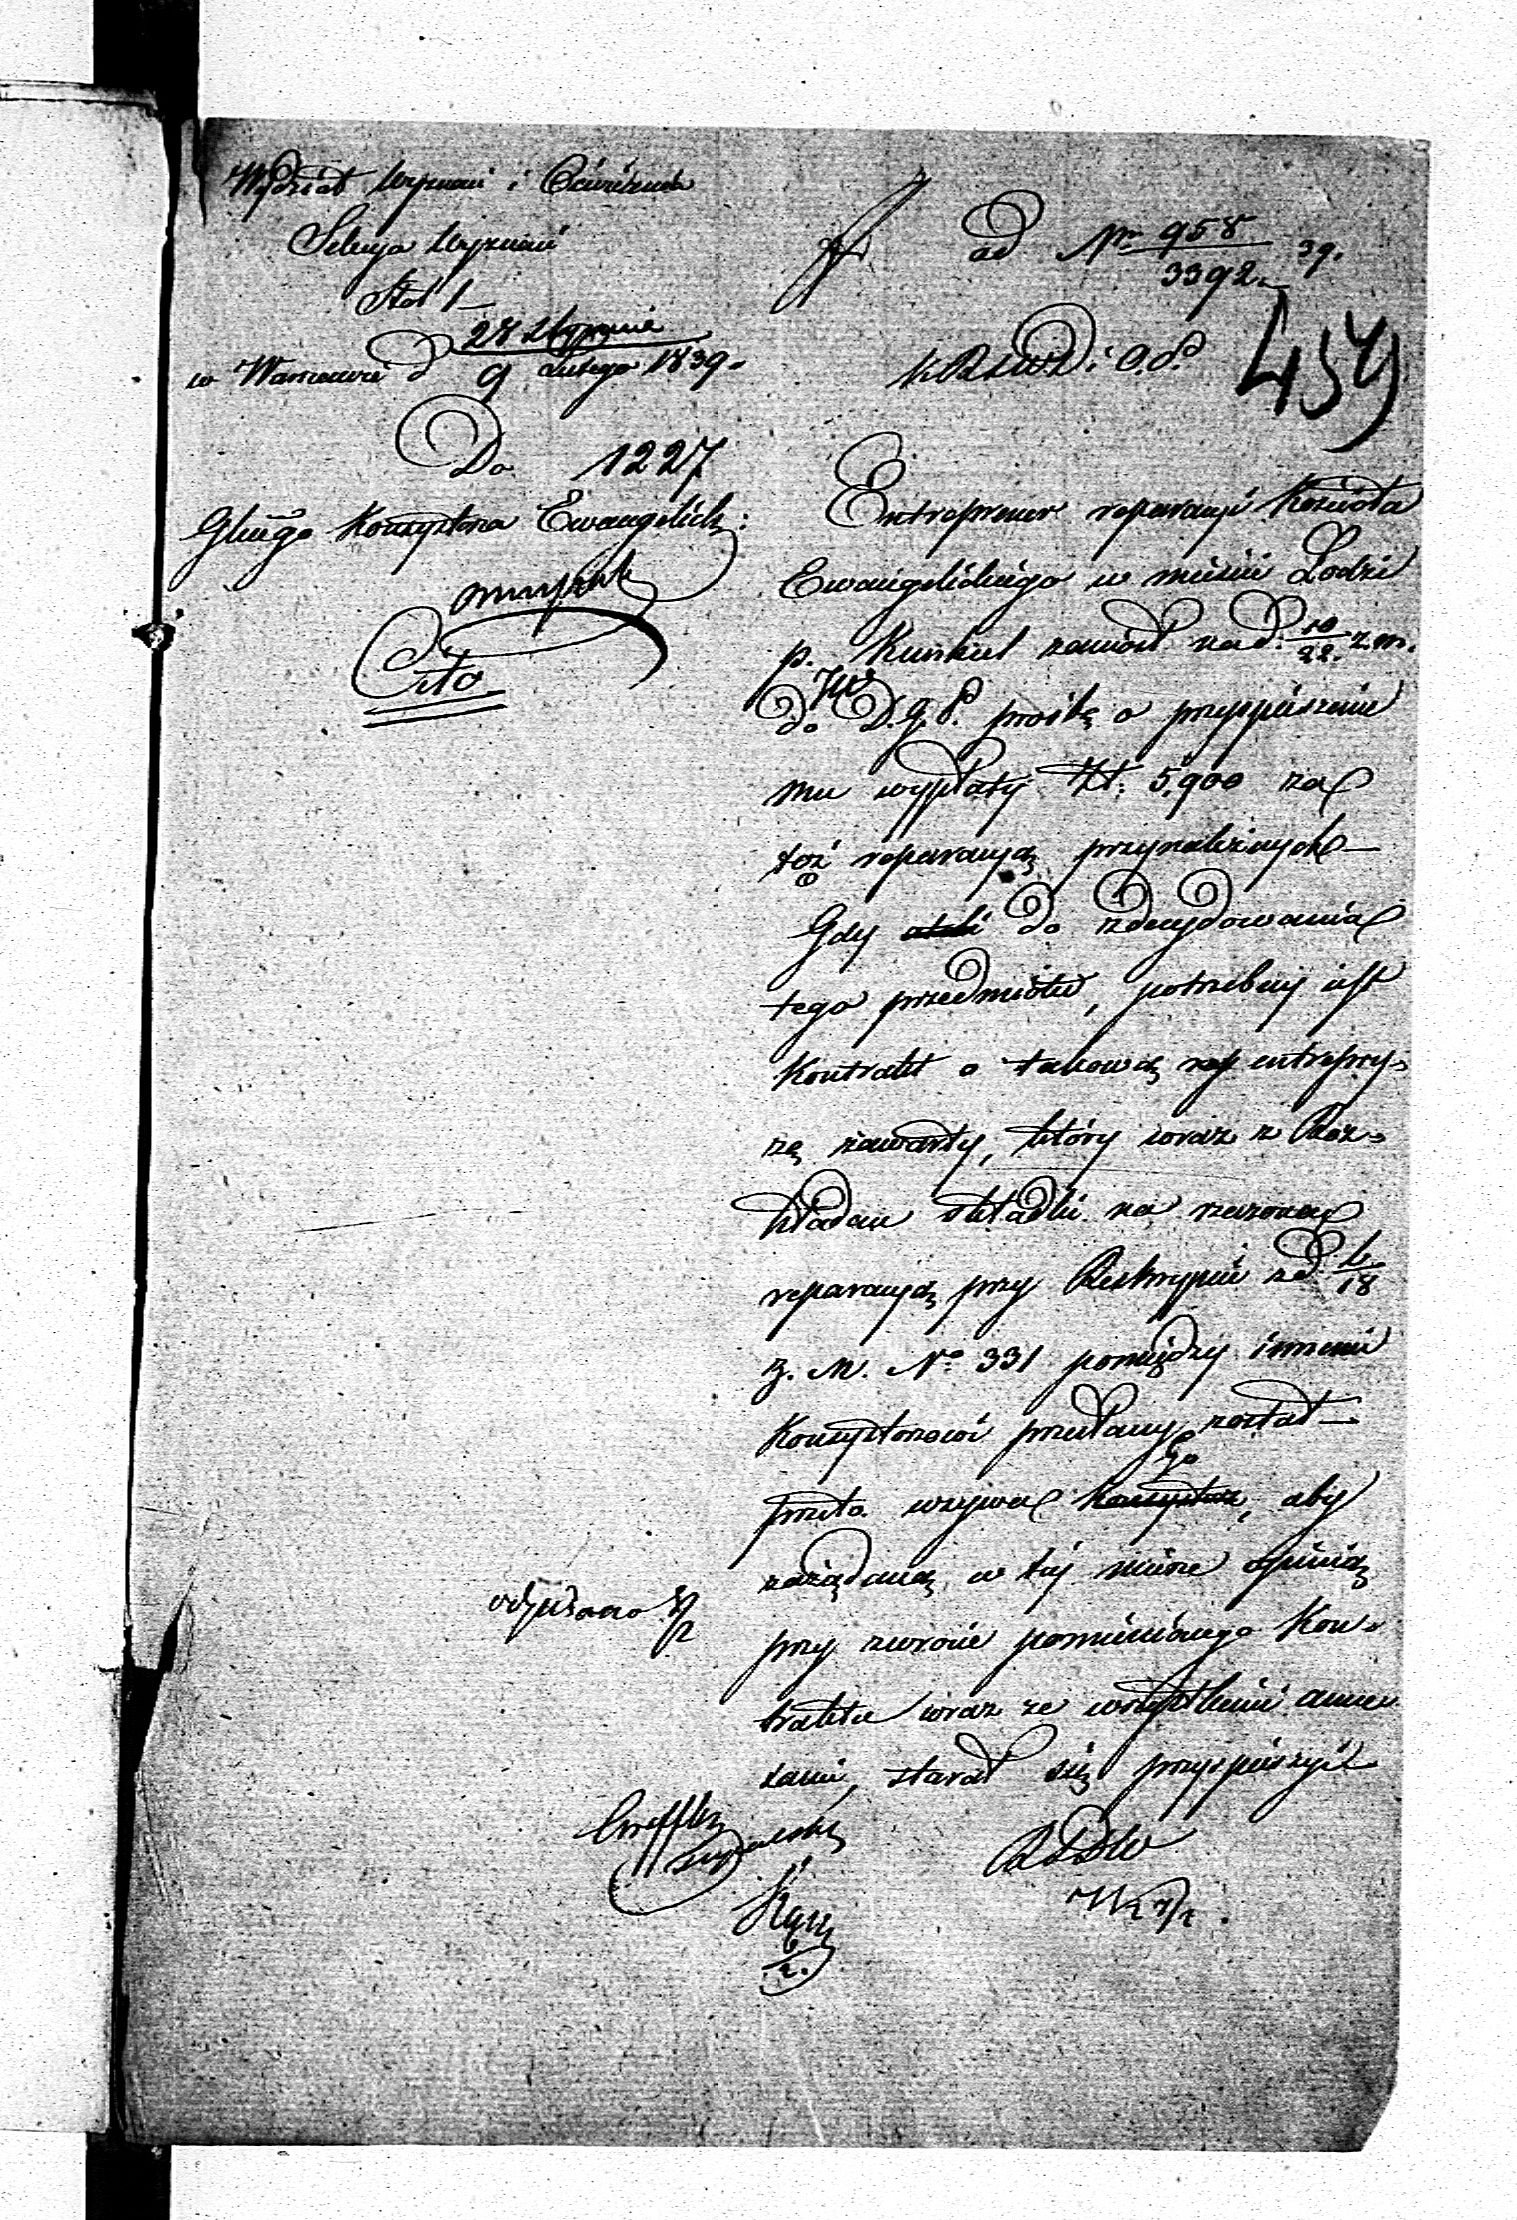 Wydział Wyznań i Oświécenia
Sekcya Wyznań
Stół 1
w Warszawie d 28 Stycznia / 9 Lutego 1839.
Do 1227
Głnégo Konsystorza Ewangelick:
Cito
ad Nr 958 / 3392 39.
K R S W D i O. P.
459
Entreprener reparacyi Kościoła
Ewangelickiego w mieście Łodzi
p. Kunkel zaniósł na d. 10/22. z. m.
do D. G. P. prośbę o przyspieszenie
mu wypłaty Zł: 5,900 za
toż reparacyą przynależnych
Gdy do zdecydowania
tego przedmiotu, potrzebny iest
Kontrakt o takową entrepry-
zę zawarty, który wraz z Roz-
kładem składki na rzeczoną
reparacyą przy Reskrypcie z d. 6/18
z. M. No 331 pomiędzy innemi
Konsystorzowi przesłany został
przeto wzywa go Konsystorz, aby
zażądaną w téj mierze opinią
przy zwrocie pomienionego Kon-
traktu wraz ze wszystkimi annex
sami, starał się przyspieszyć
odpisano
R D D W